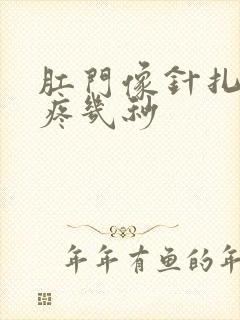 肛門像針扎
疼幾秒
年年有鱼的年